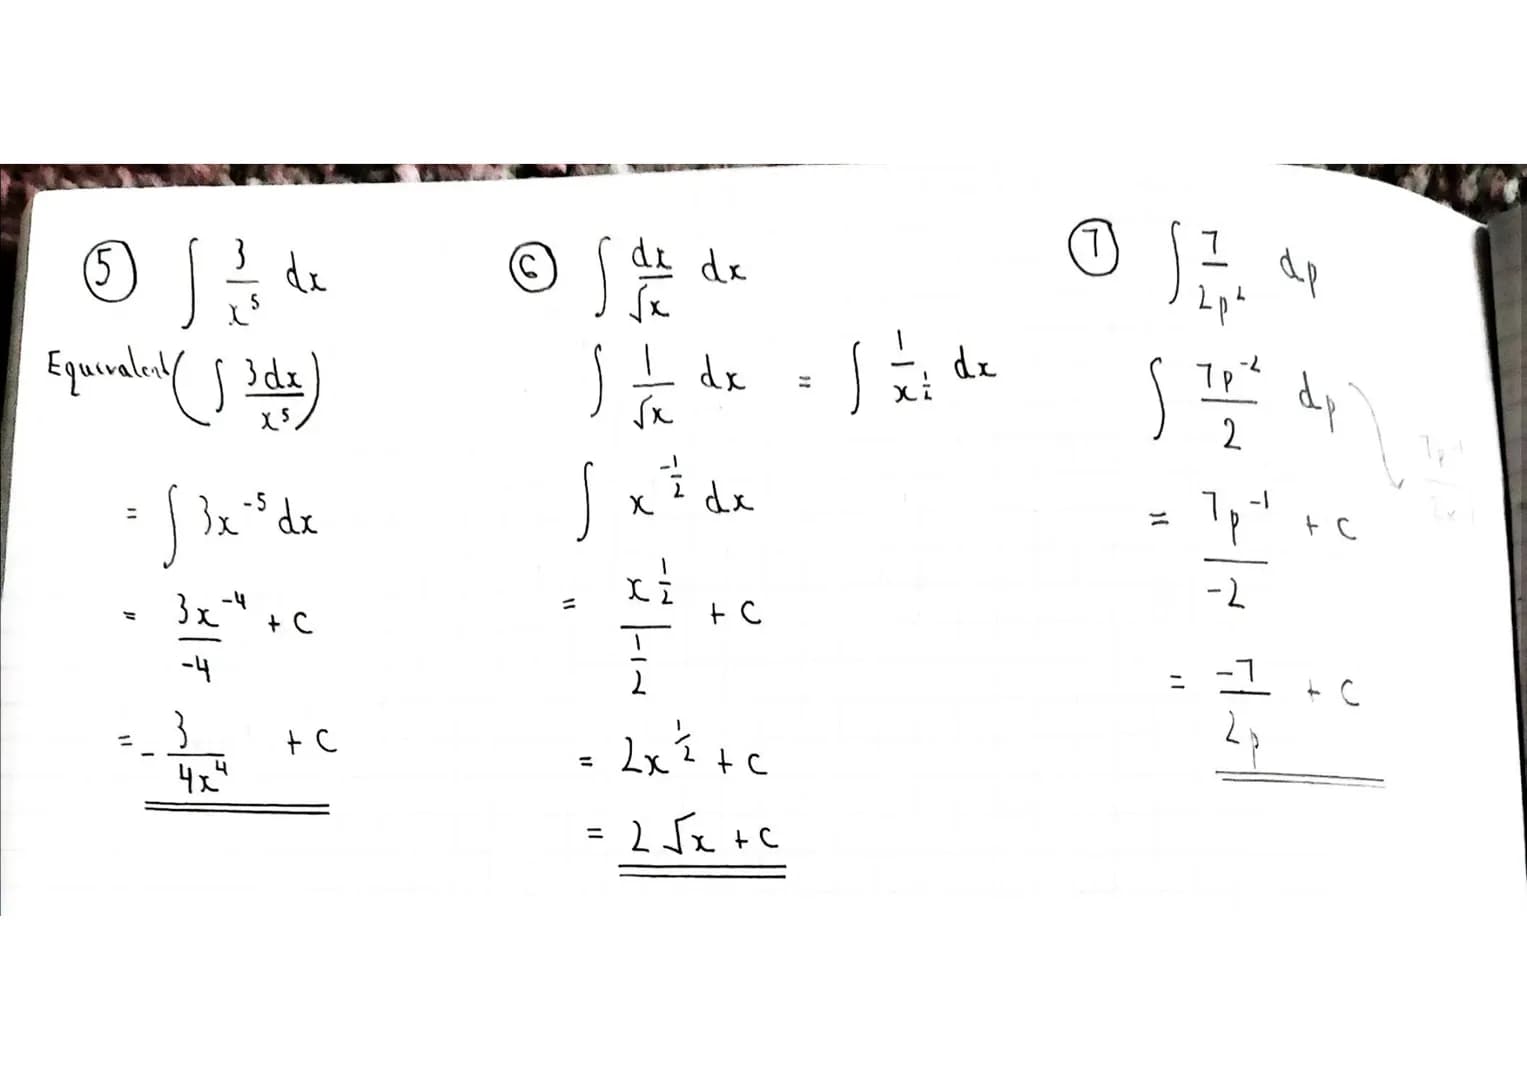 ⑤ ∫ 3/x⁵ dx
Equivalent (∫ 3dx/x⁵)
= ∫ 3x⁻⁵ dx
= 3x⁻⁴/-4 + C
= - 3/4x⁴ + C
⑥ ∫ dx/√x dx
∫ 1/√x dx = ∫ 1/x^(1/2) dx
∫ x^(-1/2) dx
= x^(1/2)/(1/2) + C
= 2x^(1/2) + C
= 2√x + C
⑦ ∫ 7/2p² dp
∫ 7p⁻²/2 dp
= 7p⁻¹/-2 + C
= -7/2p + C